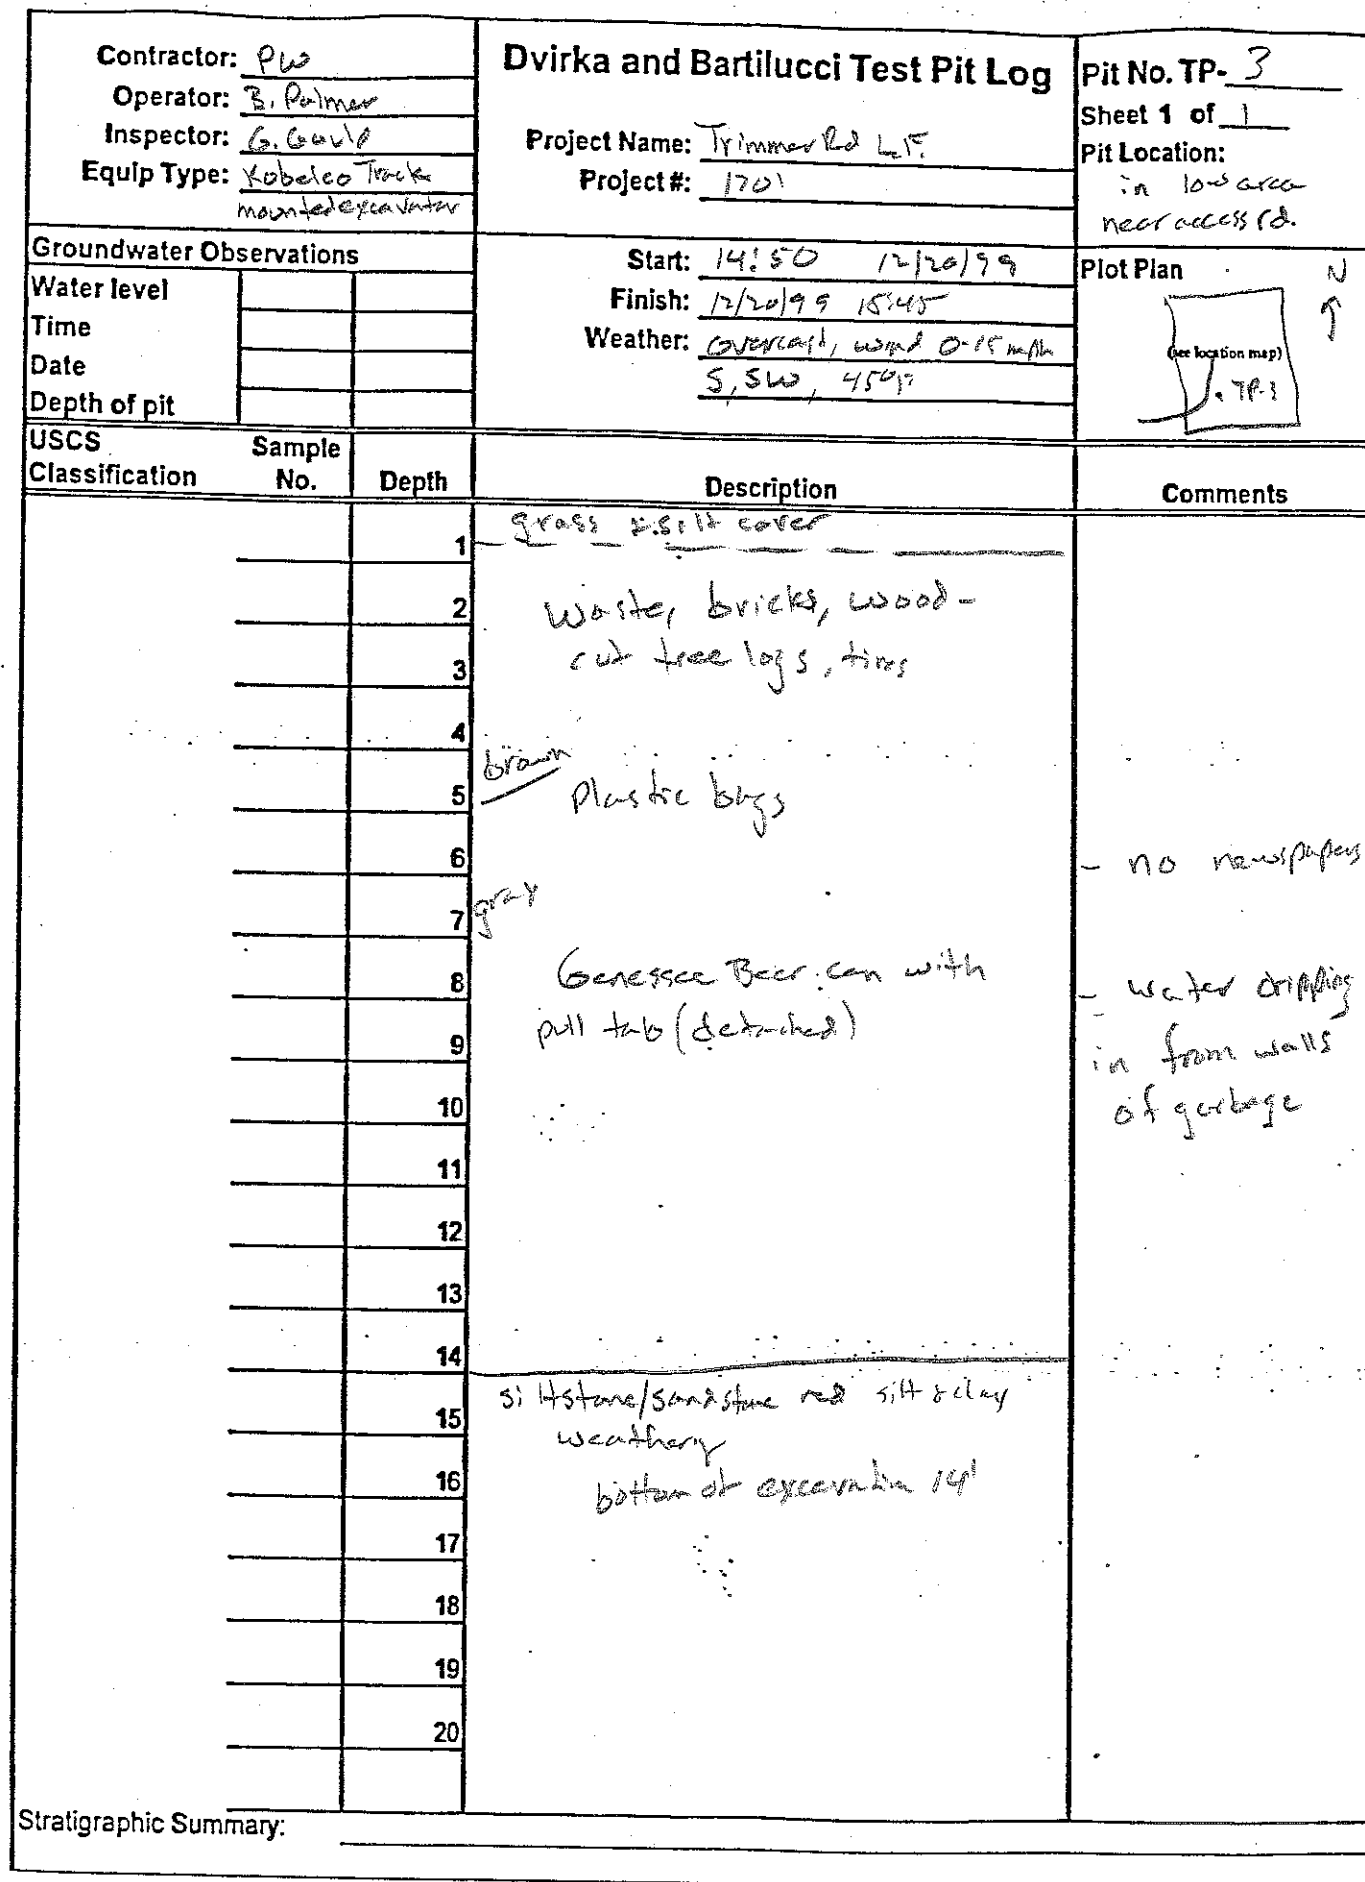 Contractor: PW
Operator: B. Palmer
Inspector: G. Gould
Equip Type: Kobelco Track
mounted excavator
Dvirka and Bartilucci Test Pit Log
Project Name: Trimmer Rd L.F.
Project #: 1701
Pit No. TP- 3
Sheet 1 of 1
Pit Location:
in low area
near access rd.
Groundwater Observations
Water level
Time
Date
Depth of pit
Start: 14:50 12/20/99
Finish: 12/20/99 15:45
Weather: overcast, wind 0-15 mph
S, SW, 45°F
Plot Plan N
(see location map)
TP-3
USCS
Classification
Sample
No.
Depth
Description
Comments
grass & silt cover
1
2 Waste, bricks, wood-
3 cut tree logs, tires
4
brown
5 Plastic bags
6 - no newspapers
gray
7
8 Genessee Beer can with - water dripping
9 pull tab (detached) in from walls
10 of garbage
11
12
13
14
siltstone/sandstone red silt & clay
15 weathery
16 bottom of excavation 14'
17
18
19
20
Stratigraphic Summary: